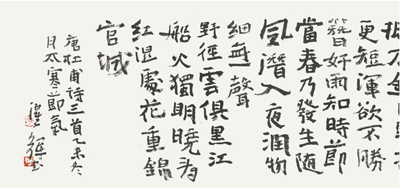 更短渾欲不勝
簪好雨知時節
當春乃發生随
風潛入夜潤物
細無聲
野徑雲俱黑江
船火獨明曉看
紅濕處花重錦
官城
唐杜甫诗三首乙未冬
月大寒之節氣